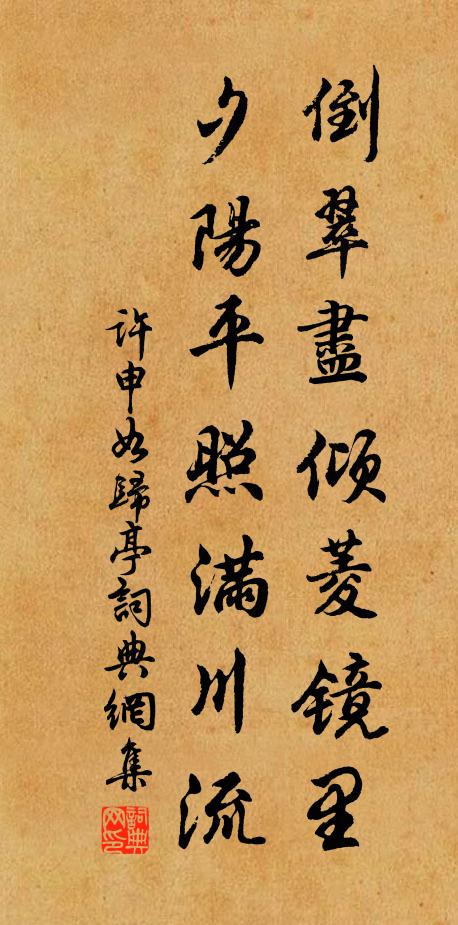 倒翠盡傾菱镜里
夕陽平照满川流
许申如歸亭詞典網集
詞典网印